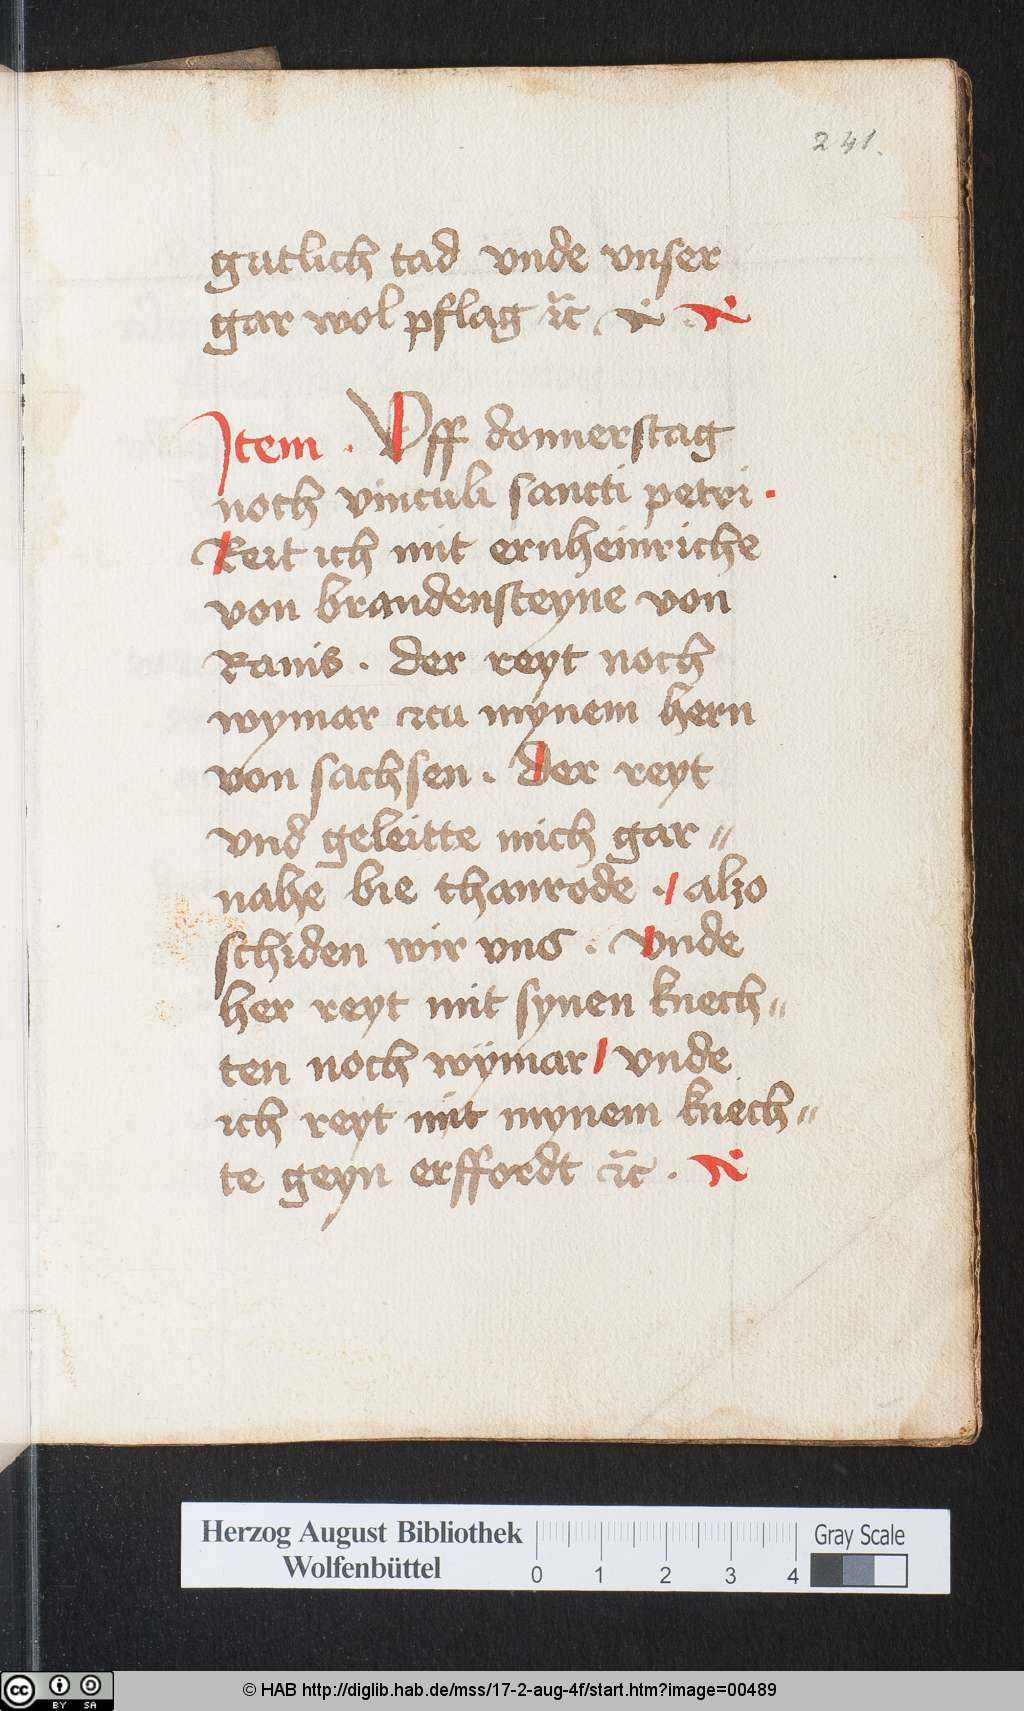 241.
gutlich tad vnde vnser
gar wol pflag ꝛc
Item . Vff donnerstag
noch vinculi sancti petri .
Reit ich mit ernheinriche
von brandensteyne von
Ranis . der reyt noch
wymar zcu mynem hern
von sachsen . Der reyt
vnd geleitte mich gar //
nahe bie thanrode . / alzo
schiden wir vns . Vnde
her reyt mit synen knech //
ten noch wÿmar / vnde
ich reyt mit mynem knech //
te geyn erffordt ꝛc .
Herzog August Bibliothek
Wolfenbüttel
0 1 2 3 4
Gray Scale
cc BY SA
© HAB http://diglib.hab.de/mss/17-2-aug-4f/start.htm?image=00489